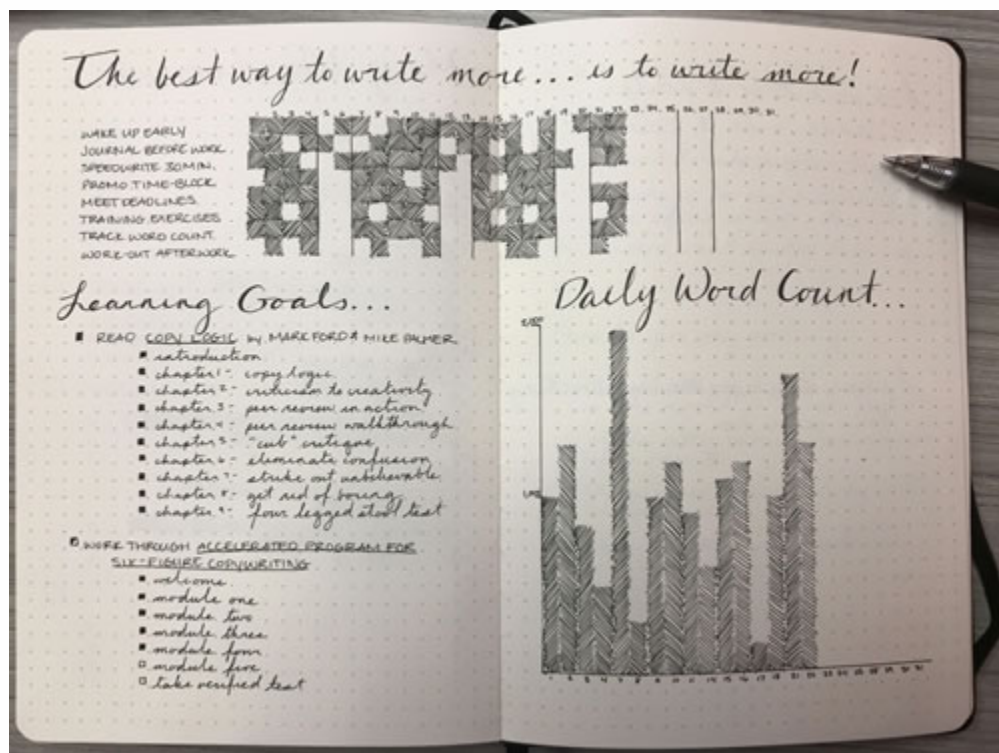 The best way to write more... is to write more!
WAKE UP EARLY
JOURNAL BEFORE WORK
SPEEDWRITE 30 MIN.
PROMO TIME-BLOCK
MEET DEADLINES
TRAINING EXERCISES
TRACK WORD COUNT
WORK-OUT AFTERWORK
Learning Goals...
READ COPY LOGIC by MARK FORD & MIKE PALMER
introduction
chapter 1 - copy logic
chapter 2 - criticism to creativity
chapter 3 - peer review in action
chapter 4 - peer review walkthrough
chapter 5 - "cub" critique
chapter 6 - eliminate confusion
chapter 7 - strike out unbelievable
chapter 8 - get rid of boring
chapter 9 - four legged stool test
WORK THROUGH ACCELERATED PROGRAM FOR
SIX-FIGURE COPYWRITING
welcome
module one
module two
module three
module four
module five
take verified test
Daily Word Count...